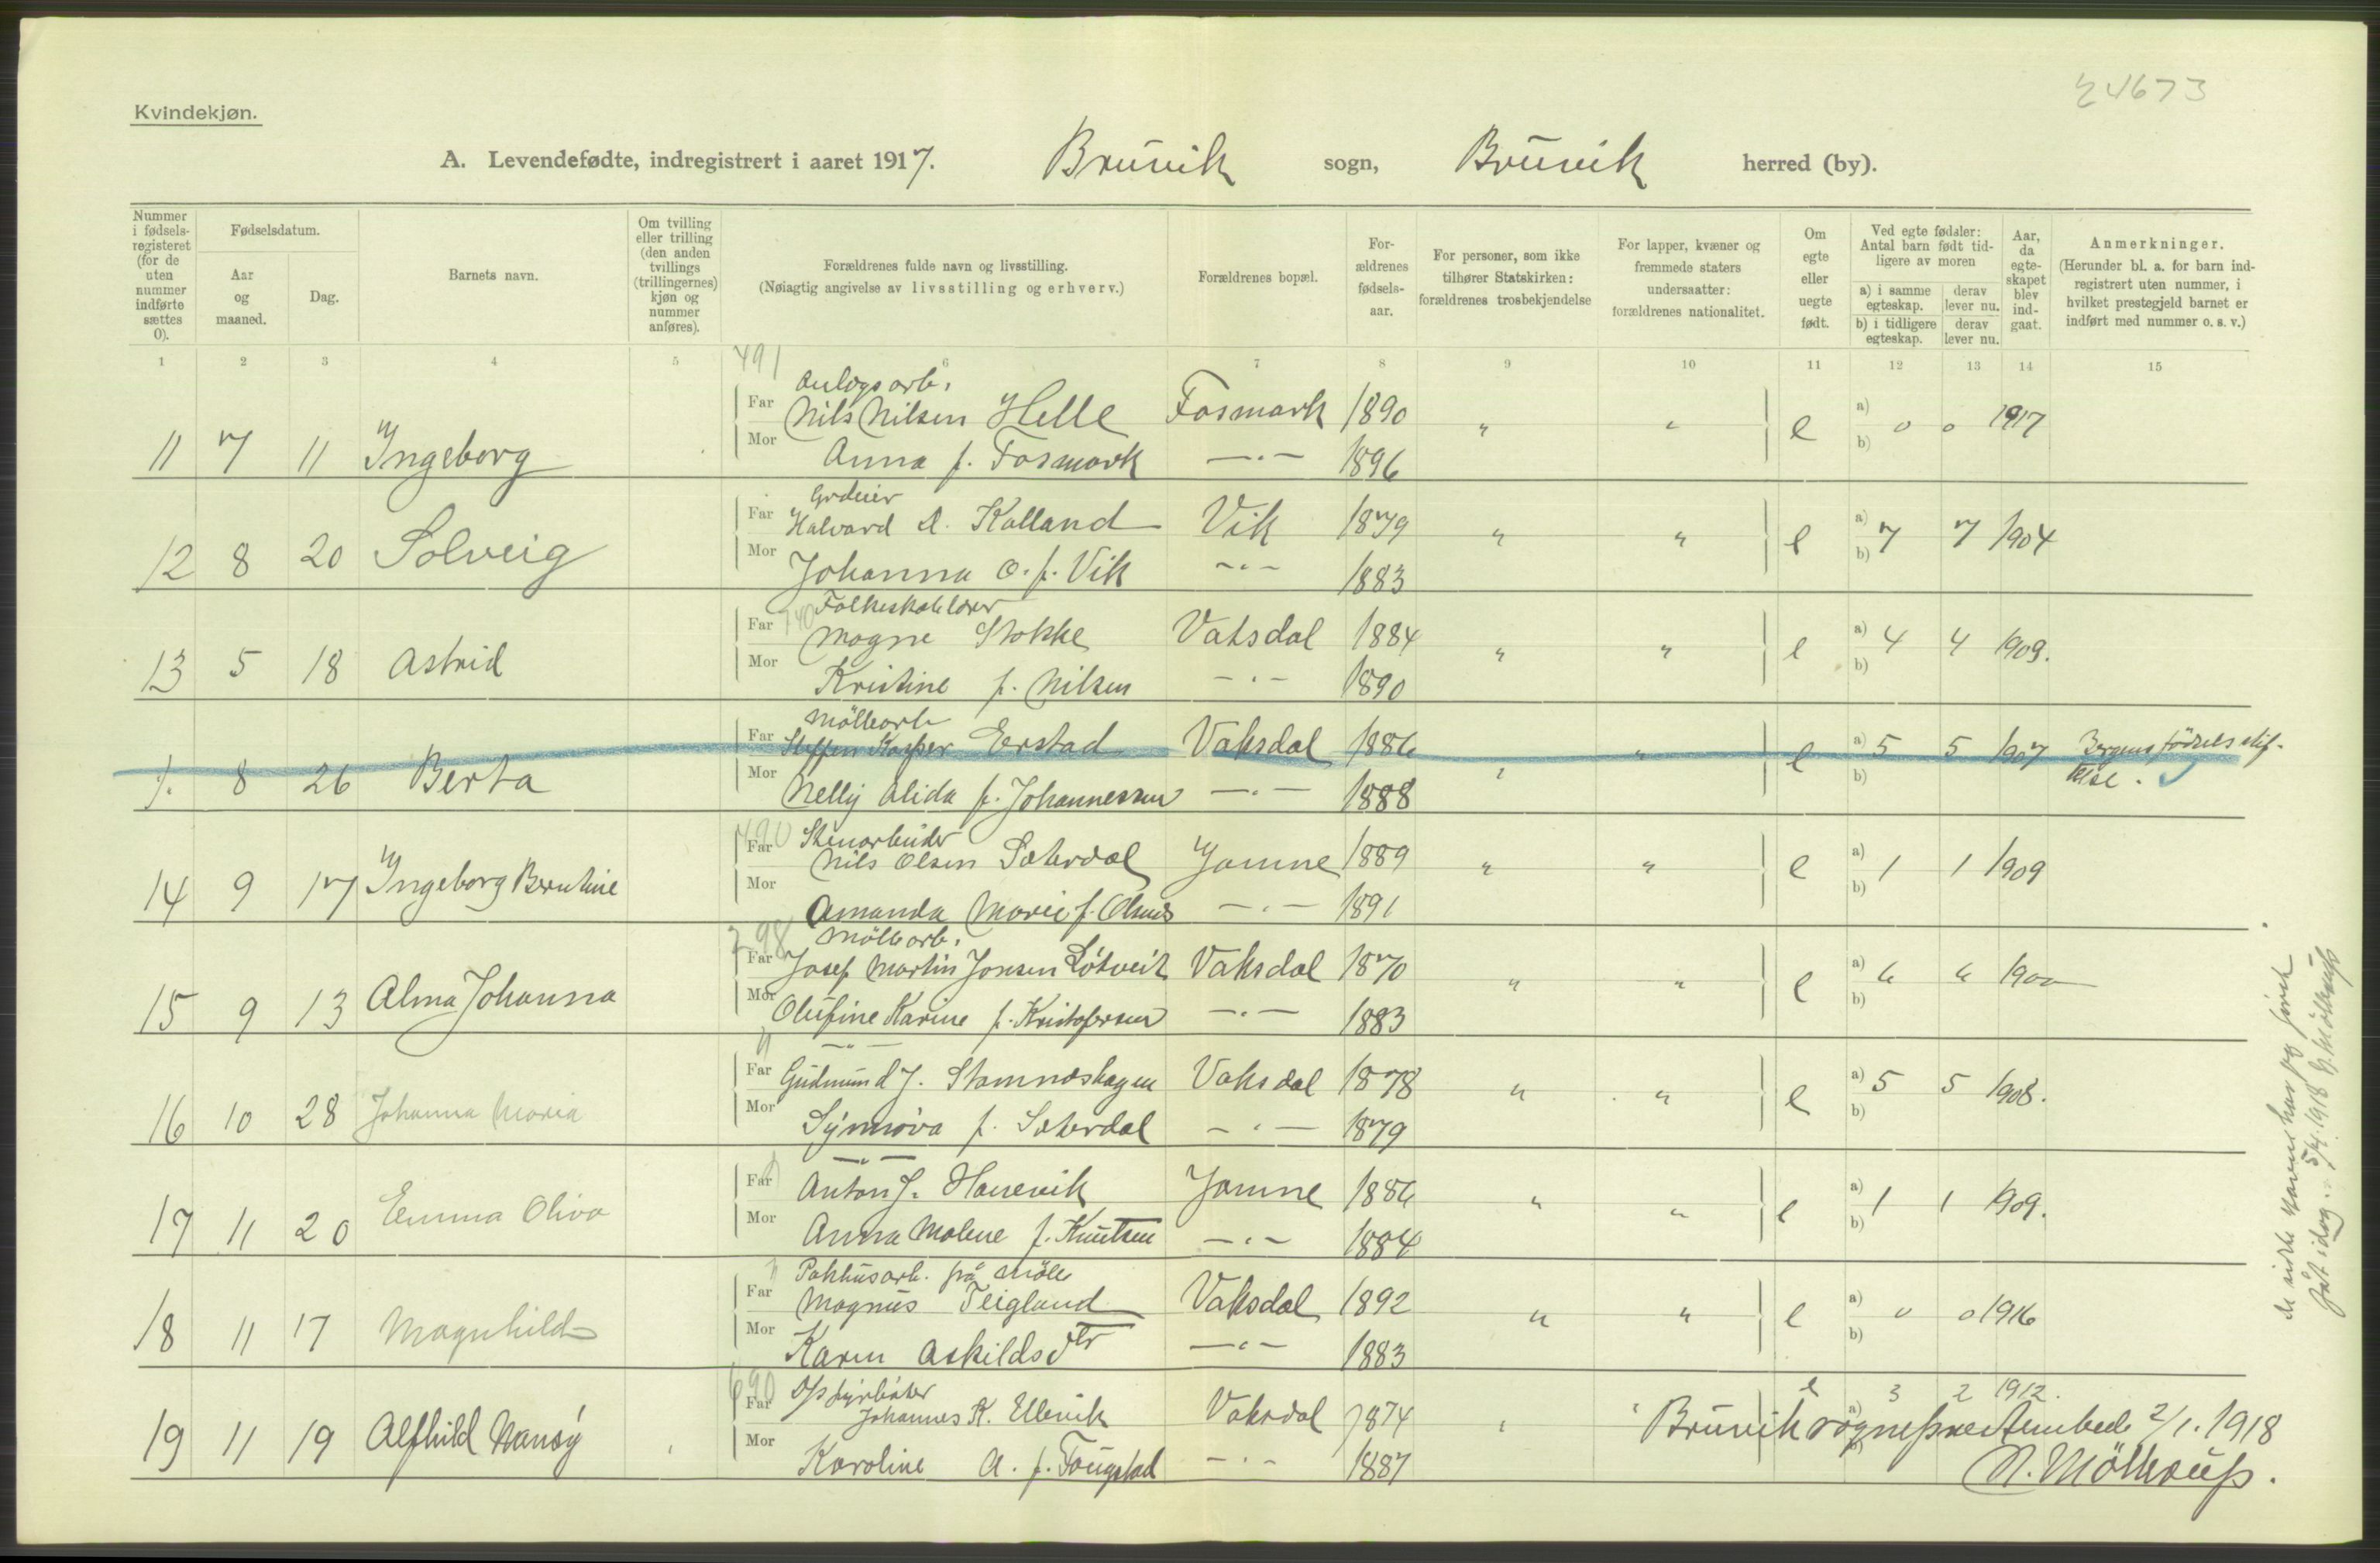 24673
Kvindekjøn.
A. Levendefødte, indregistrert i aaret 1917. Bruvik sogn, Bruvik herred (by).
Nummer i fødselsregisteret (for de uten nummer indførte sættes 0).
Fødselsdatum.
Aar og maaned.
Dag.
Barnets navn.
Om tvilling eller trilling (den anden tvillings (trillingernes) kjøn og nummer anføres).
Forældrenes fulde navn og livsstilling.
(Nøiagtig angivelse av livsstilling og erhverv.)
Forældrenes bopæl.
Forældrenes fødselsaar.
For personer, som ikke tilhører Statskirken: forældrenes trosbekjendelse
For lapper, kvæner og fremmede staters undersaatter: forældrenes nationalitet.
Om egte eller uegte født.
Ved egte fødsler: Antal barn født tidligere av moren
a) i samme egteskap. derav lever nu.
b) i tidligere egteskap. derav lever nu.
Aar, da egteskapet blev indgaat.
Anmerkninger.
(Herunder bl. a. for barn indregistrert uten nummer, i hvilket prestegjeld barnet er indført med nummer o. s. v.)
1 2 3 4 5 6 7 8 9 10 11 12 13 14 15
491 Anlægsarb.
Far Nils Nilsen Helle Fosmark 1890 " "
11 7 11 Ingeborg e a) b) 0 0 1917
Mor Anna f. Fosmark —"— 1896
Grdeier
Far Halvard A. Kalland Vik 1879 " "
12 8 20 Solveig e a) b) 7 7 1904
Mor Johanna O. f. Vik —"— 1883
740 Folkeskolelærer
Far Magne Stokke Vaksdal 1884 " "
13 5 18 Astrid e a) b) 4 4 1909.
Mor Kristine f. Nilsen —"— 1890
Möllearb
Far Steffen Kasper Erstad Vaksdal 1886 " "
8 26 Berta e a) b) 5 5 1907 Bergens födselsstiftelse.
Mor Nelly Alida f. Johannessen —"— 1888
490 Stenarbeider
Far Nils Olsen Sæterdal Jamne 1889 " "
14 9 17 Ingeborg Berntine e a) b) 1 1 1909
Mor Amanda Marie f. Olsnes —"— 1891
298 Möllearb.
Far Josef Martin Jonsen Lötveit Vaksdal 1870 " "
15 9 13 Alma Johanna e a) b) 6 6 1900
Mor Olufine Karine f. Kristofersen —"— 1883
" —"—
Far Gudmund J. Stamneshagen Vaksdal 1878 " "
16 10 28 Johanna Maria e a) b) 5 5 1908.
Mor Synnöva f. Sæterdal —"— 1879
" —"—
Far Anton J. Hanevik Jamne 1886 " "
17 11 20 Emma Oliva e a) b) 1 1 1909.
Mor Anna Malene f. Knutsen —"— 1884
" Pakhusarb. på Mölle
Far Magnus Teigland Vaksdal 1892 " "
18 11 17 Magnhild e a) b) 0 0 1916
Mor Karen Askildsdtr —"— 1883
690
Far Johannes K. Ellevik Vaksdal 1874 " " e 3 2 1912.
19 11 19 Alfhild Nansy Bruvik sogneprestembede 2/1. 1918
Mor Karoline A. f. Fougstad —"— 1887
N. Möllerup.
De siste navne har jeg först
fåt idag. 5/4. 1918 N. Möllerup